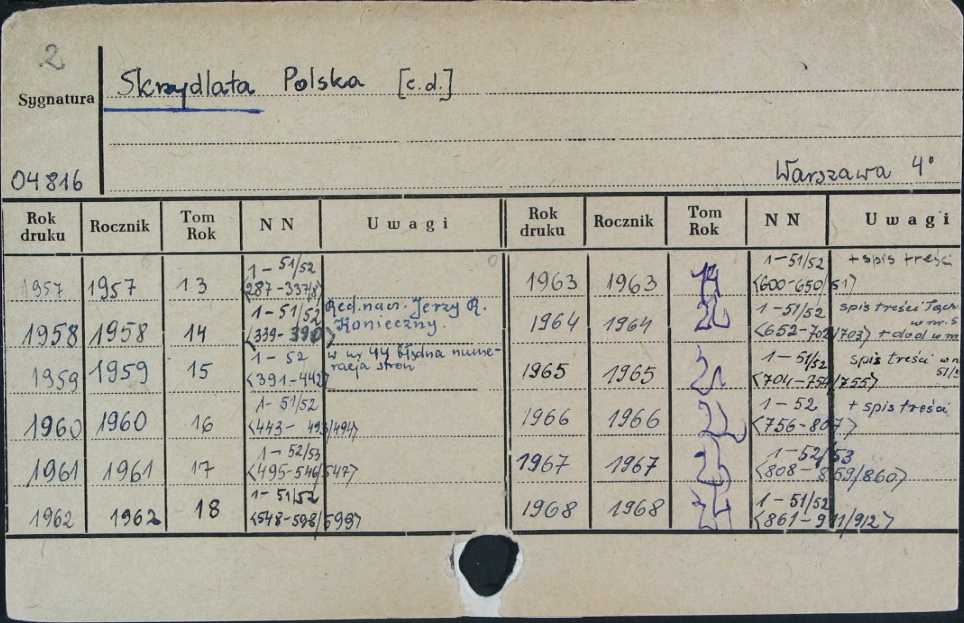 2
Skrzydlata Polska [c.d.]
Sygnatura
04816
Warszawa 4°
Rok druku Rocznik Tom Rok NN Uwagi Rok druku Rocznik Tom Rok NN Uwagi
1957 1957 13 1-51/52 <287-337/8>
1958 1958 14 1-51/52 <339-390> Red. nacz. Jerzy R. Konieczny.
1959 1959 15 1-52 <391-442> w nr 44 błędna numeracja stron
1960 1960 16 1-51/52 <443-493/494>
1961 1961 17 1-52/53 <495-546/547>
1962 1962 18 1-51/52 <548-598/599>
1963 1963 19 1-51/52 <600-650/51> + spis treści
1964 1964 1-51/52 <652-702/703> spis treści w nr 5 + dod w
1965 1965 1-51/52 <704-754/755> spis treści w
1966 1966 1-52 <756-807> + spis treści
1967 1967 1-52/53 <808-859/860>
1968 1968 1-51/52 <861-911/912>